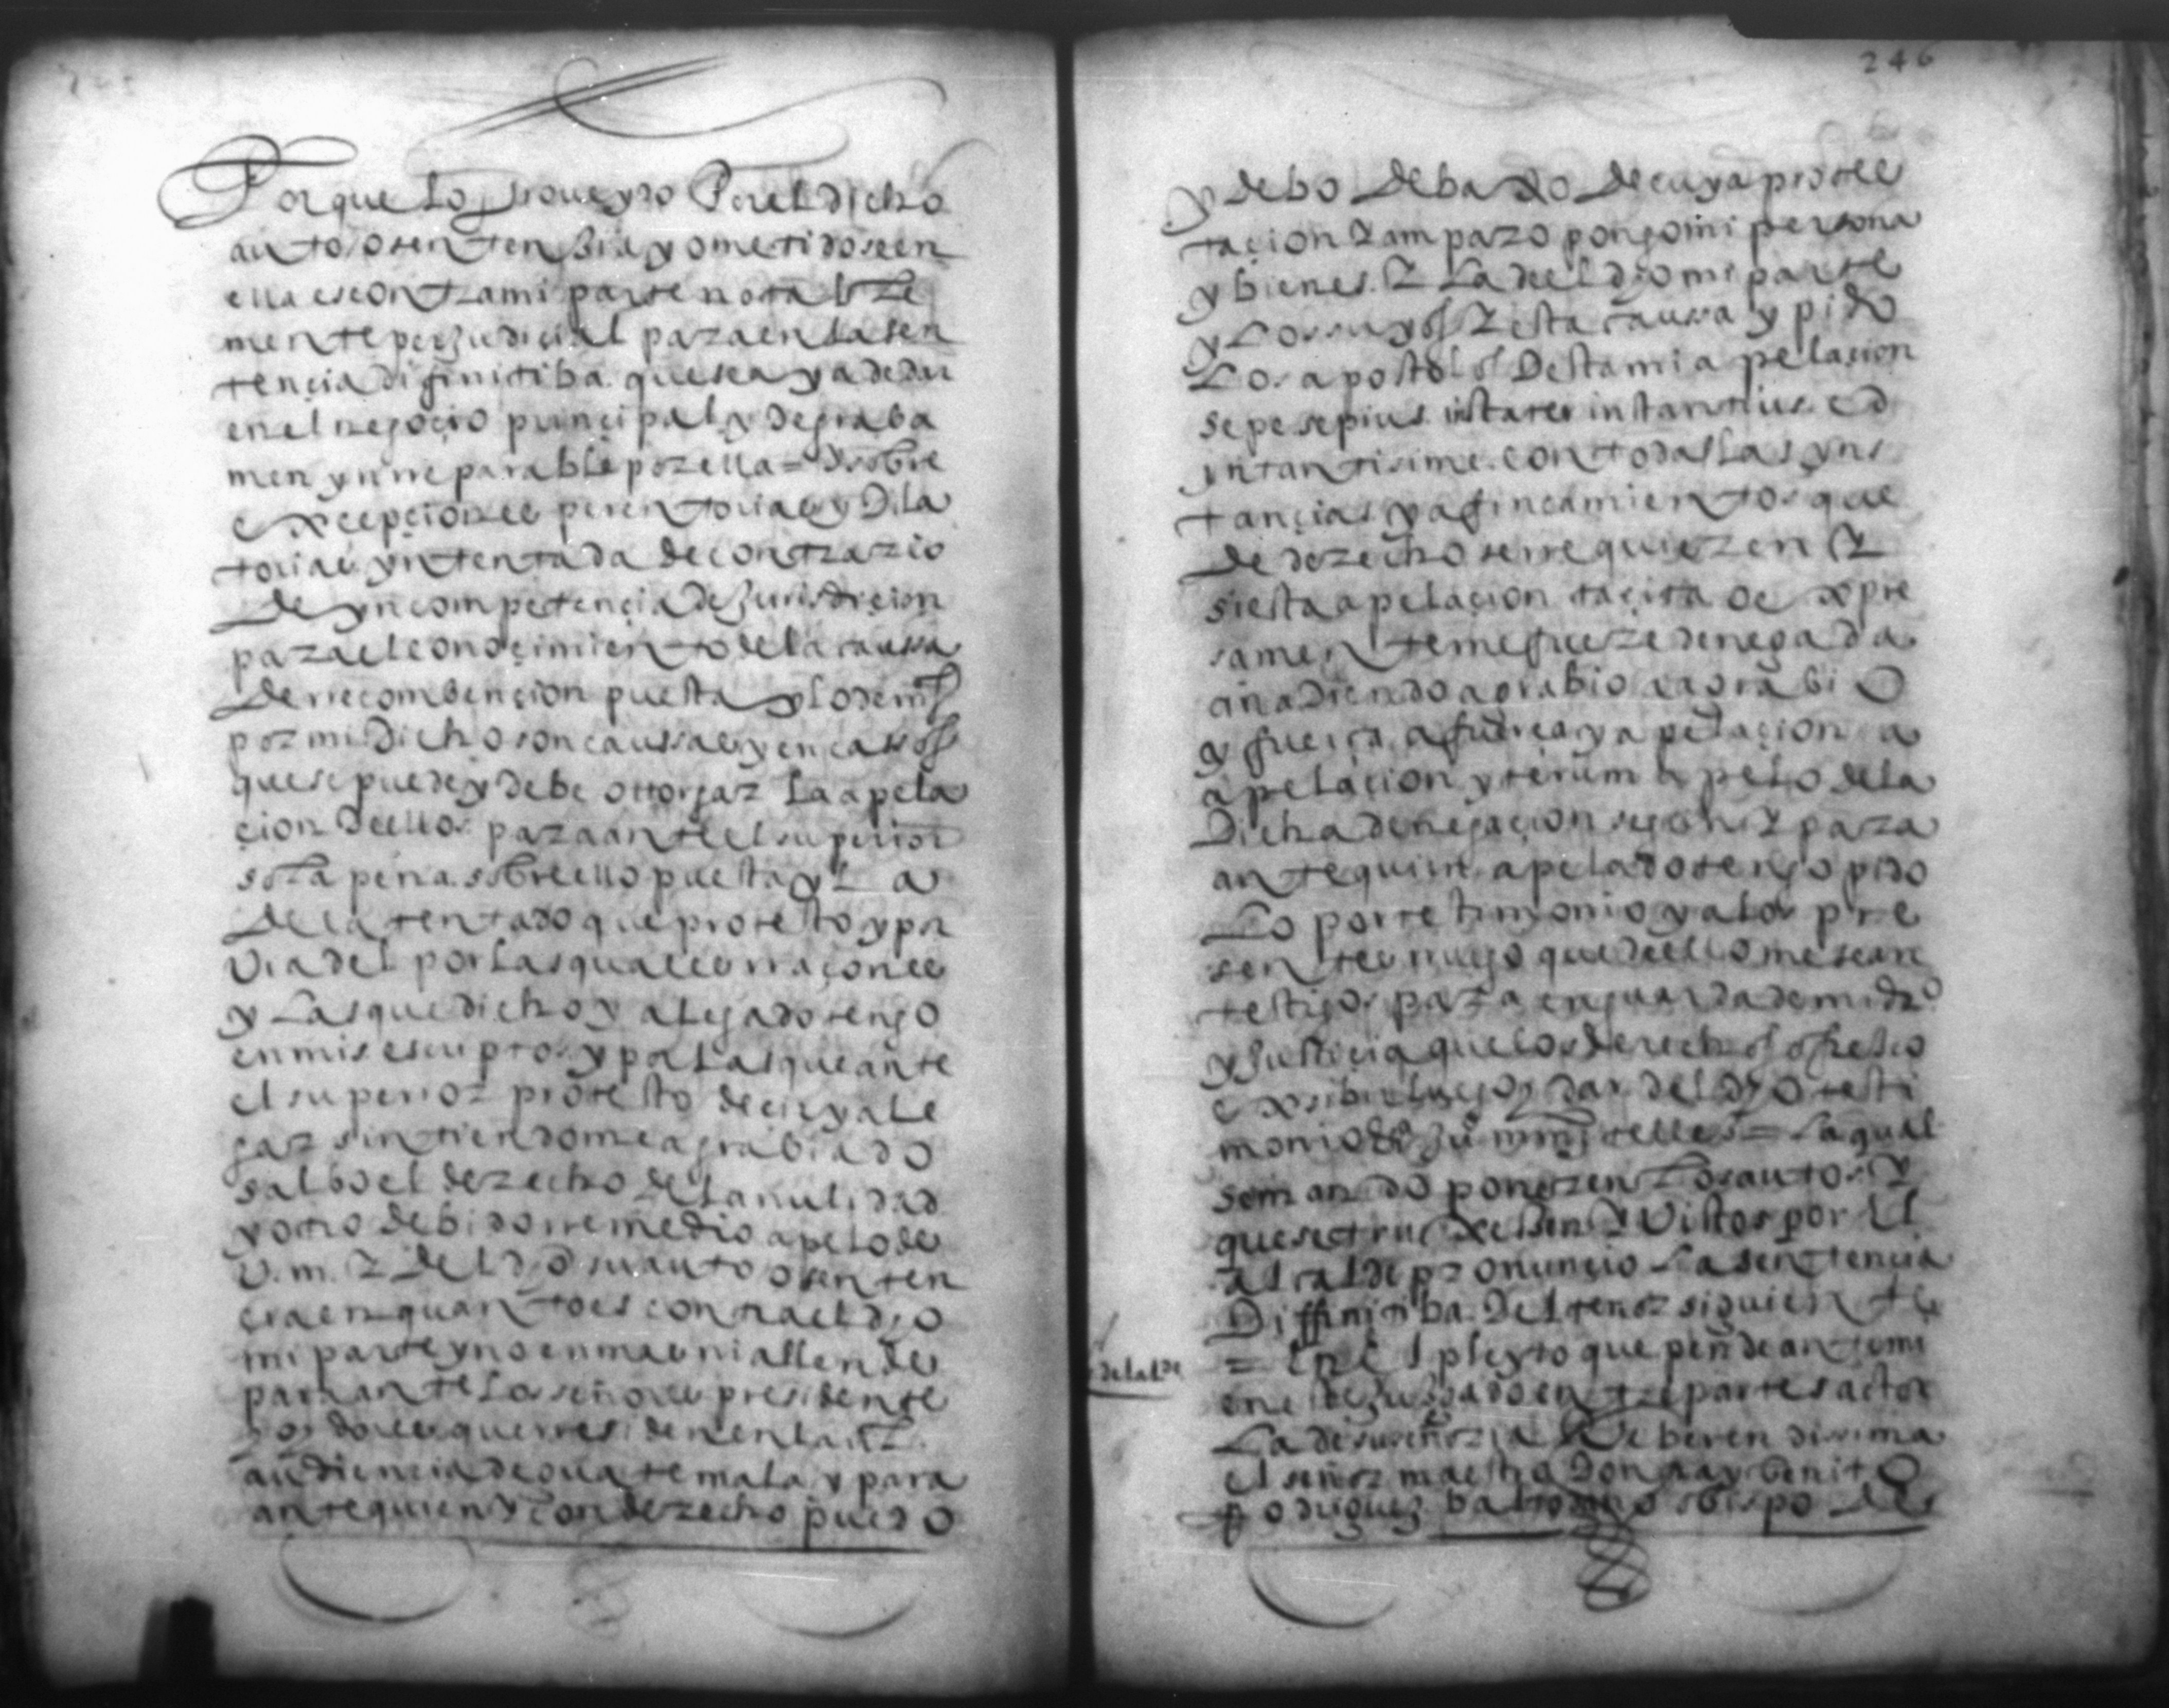 Por que lo proueydo Por el dicho
auto o sentensia y ometido se en
ella es contra mi parte notable
mente perjudicial para en la sen
tençia difinitiba que se aya de dar
en el negoçio prinçipal y de graba
men ynreparable por ella = y sobre
exçepçiones perentorias y dila
torias yntentada de contrario
De yncompetençia de jurisdiçion
para el conoçimiento de la caussa
De rrecombençion puesta y lo demas
por mi dicho son caussas y en cassos
que se puede y debe ottorgar la apela
çion dellos para ante el superior
so la pena sobre ello puesta y la
Del atentado que protesto y por
Via del por las quales rraçones
y Las que dicho y alegado tengo
en mis escriptos y por las que ante
el superior protesto decir y ale
gar sintiendome agrabiado
salbo el derecho de la nulidad
y otro debido rremedio apelo de
V. m. y del dho su auto o senten
çia en quanto es contra el dho
mi parte y no en mas ni allende
para ante los señores presidente
oydores que rresiden en la rl
audiencia de guatemala y para
ante quien y con derecho puedo
246
y debo debaxo de cuya protes
taçion y amparo pongo mi persona
y bienes y la del dho mi parte
y Los suyos y esta caussa y pido
Los apostolos desta mi apelaçion
sepe sepius instater instantius ed
yntantisime con todas las yns
tançias y afincamientos que
de derecho se rrequieren y
si esta apelaçion taçita o expre
samente me fuere denegada
añadiendo agrabio a agrabio
y fuerça a fuerça y apelaçion a
apelaçion yterum apelo de la
Dicha denegaçion segun y para
ante quien apelado tengo pido
Lo por testimonio y a los pre
sentes rruego que dello me sean
testigos para en guarda de mi dro
y Justiçia que los derechos ofresco
exsibir luego y dar del dho testi
monio Ju mrn telles = La qual
se mando poner en Los autos y
que se truxesen y Vistos por El
alcalde pronunçio La sentencia
Diffinitiba del tenor siguiente
de la l de
= En El pleyto que pende ante mi
en este Jusgado entre partes actor
La de su señoria Reberendisima
el señor maestro don fray benito
Rodriguez baltodano obispo des